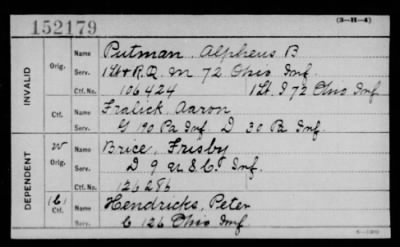 152179
(3-H-4)
INVALID
Orig.
Name Putman, Alpheus B
Serv. 1 Lt & R.Q.M 72 Ohio Inf.
Ctf. No. 106424 1 Lt. I 72 Ohio Inf
Ctf.
Name Fralick, Aaron
Serv. G 190 Pa Inf D 30 Pa Inf.
DEPENDENT
W
Orig.
Name Brice, Frisby
Serv. D 9 U.S.C. Inf.
Ctf. No. 126286
Ctf.
Name Hendricks, Peter
Serv. C 126 Ohio Inf